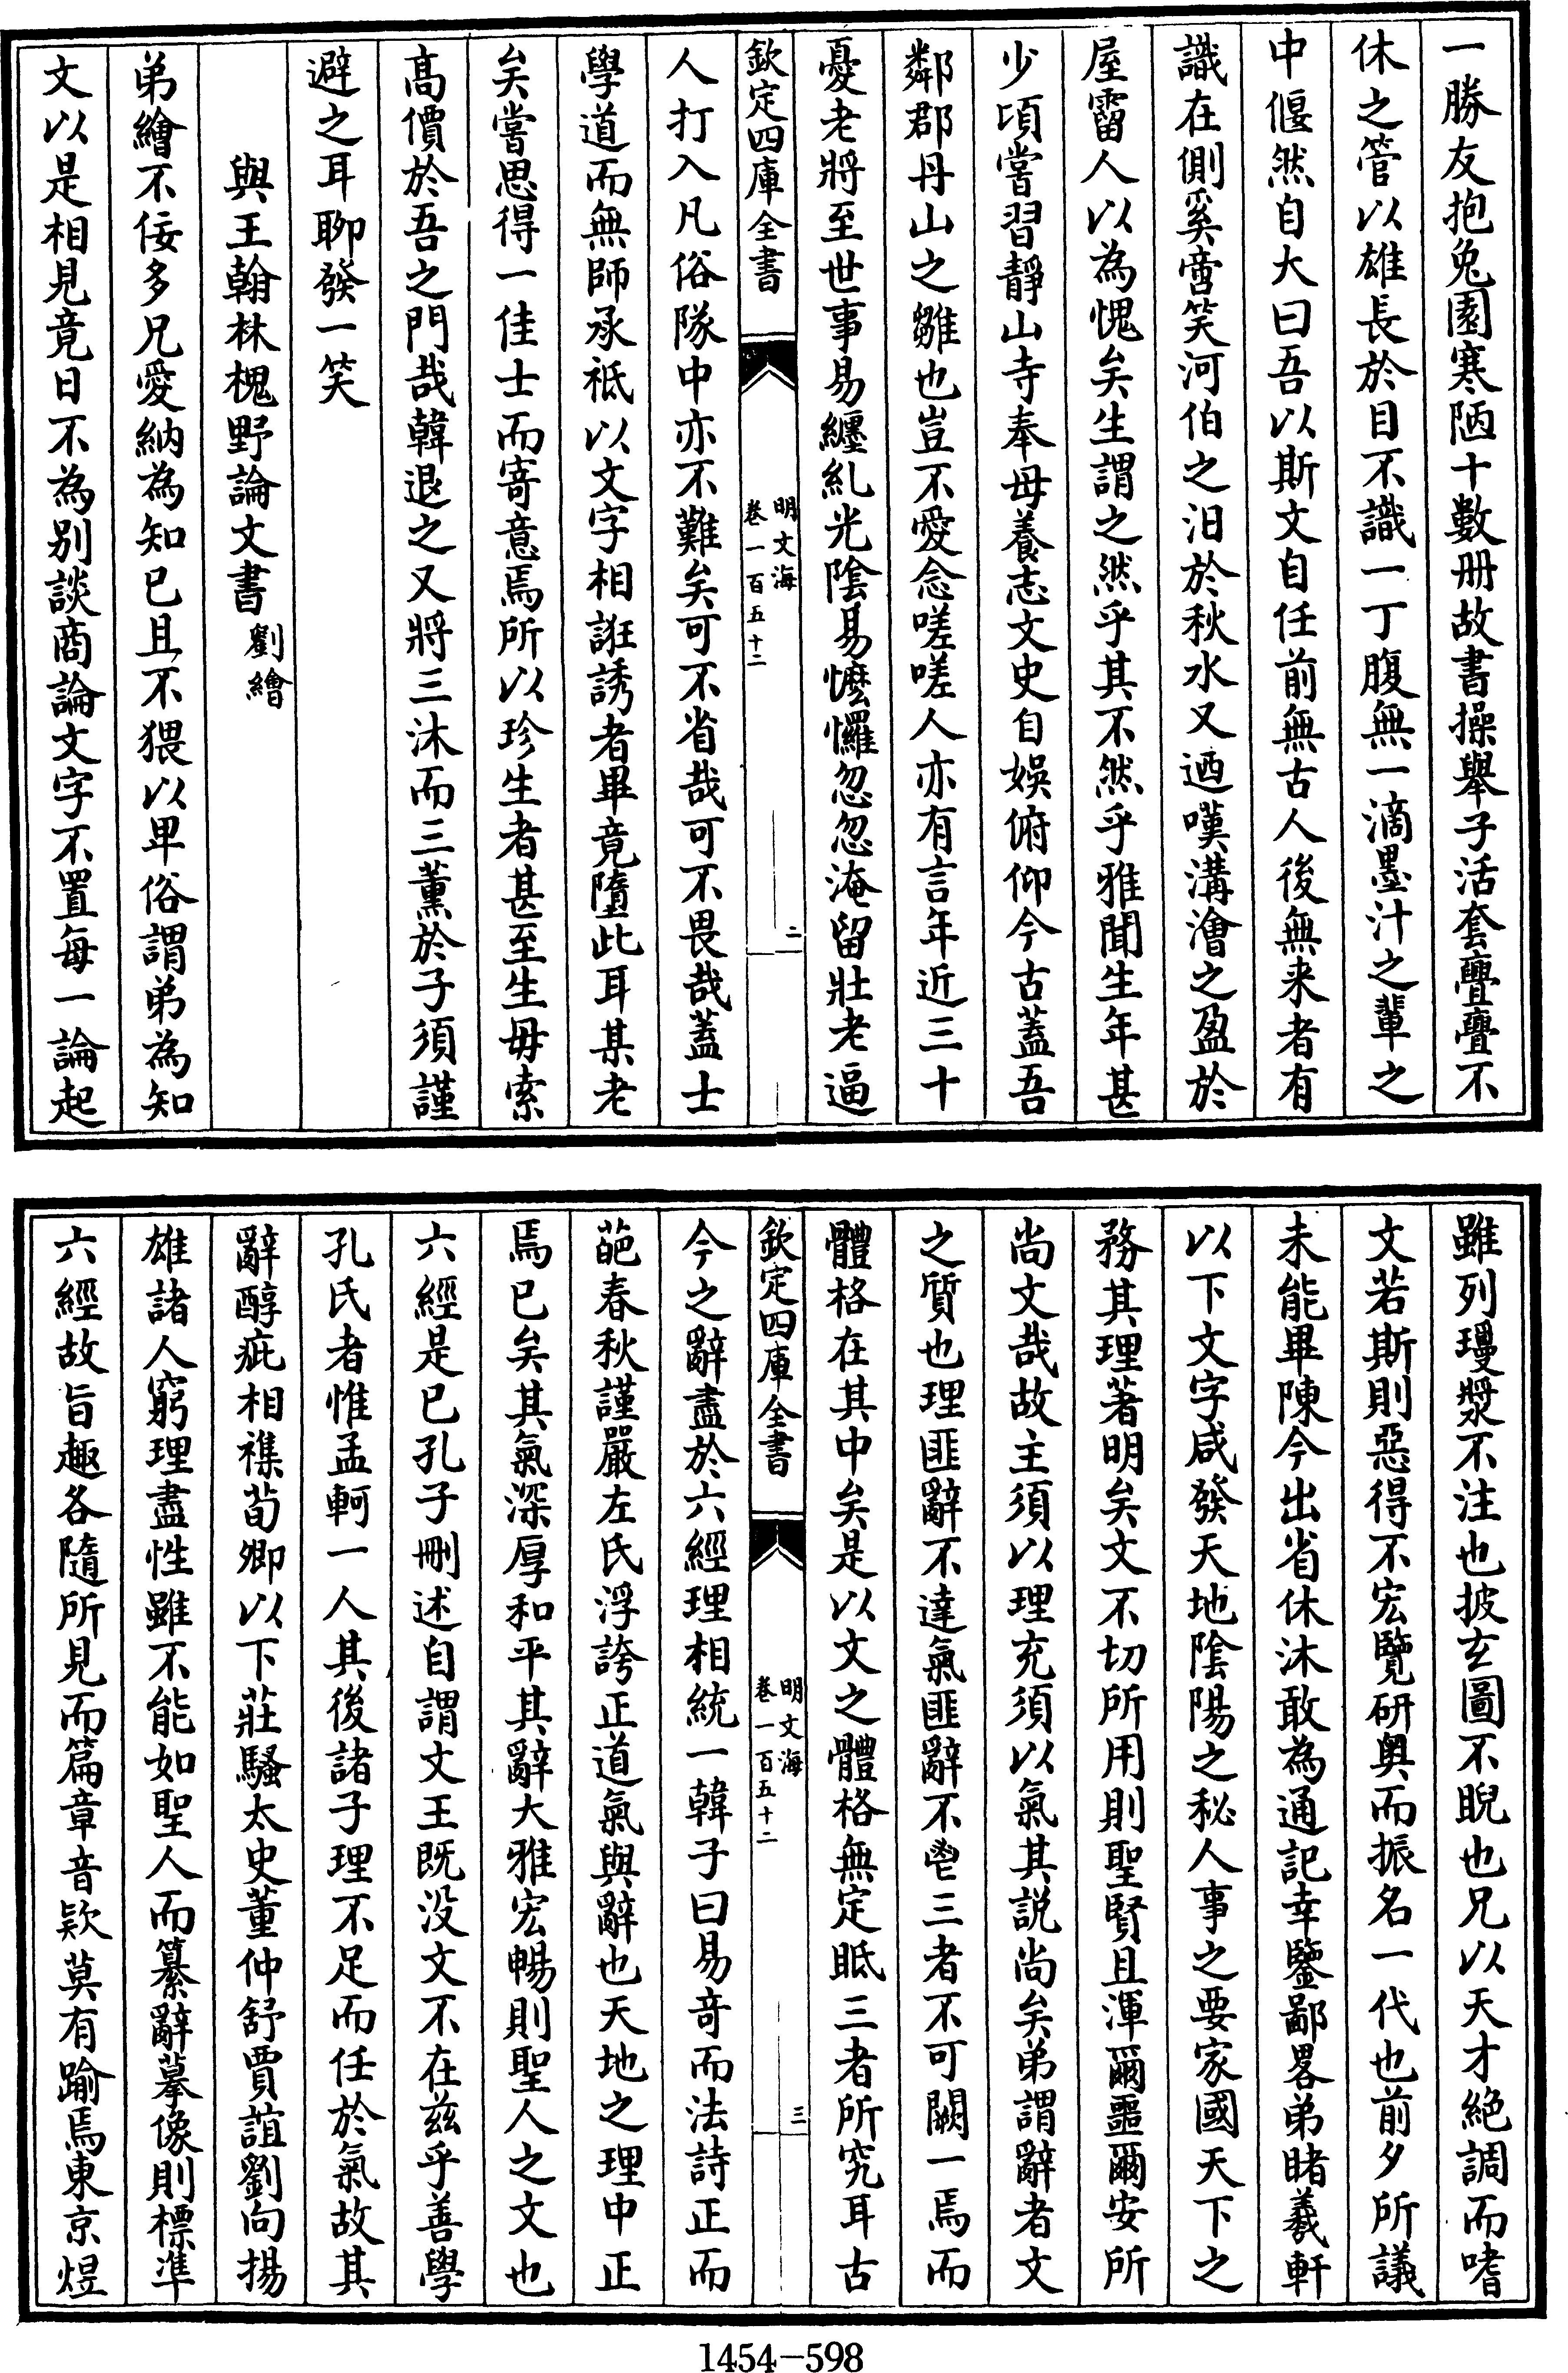 一勝友抱兔園寒陋十數册故書操舉子活套亹亹不
休之管以雄長於目不識一丁腹無一滴墨汁之輩之
中偃然自大曰吾以斯文自任前無古人後無来者有
識在側奚啻笑河伯之汨於秋水又迺嘆溝澮之盈於
屋霤人以為愧矣生謂之然乎其不然乎雅聞生年甚
少頃嘗習靜山寺奉母養志文史自娛俯仰今古蓋吾
鄰郡丹山之雛也豈不愛念嗟嗟人亦有言年近三十
憂老將至世事易纏糺光陰易懡㦬忽忽淹留壯老逼
欽定四庫全書
明文海
卷一百五十二
二
人打入凡俗隊中亦不難矣可不省哉可不畏哉蓋士
學道而無師承祗以文字相誑誘者畢竟墮此耳某老
矣嘗思得一佳士而寄意焉所以珍生者甚至生毋索
高價於吾之門哉韓退之又將三沐而三薰於子須謹
避之耳聊發一笑
與王翰林槐野論文書 劉繪
弟繪不佞多兄愛納為知已且不猥以卑俗謂弟為知
文以是相見竟日不為別談商論文字不置每一論起
雖列瓊漿不注也披玄圖不睨也兄以天才絶調而嗜
文若斯則惡得不宏覽研奥而振名一代也前夕所議
未能畢陳今出省休沐敢為通記幸鑒鄙畧弟睹羲軒
以下文字咸發天地陰陽之秘人事之要家國天下之
務其理著明矣文不切所用則聖賢且渾爾噩爾安所
尚文哉故主須以理充須以氣其説尚矣弟謂辭者文
之質也理匪辭不達氣匪辭不鬯三者不可闕一焉而
體格在其中矣是以文之體格無定眂三者所究耳古
欽定四庫全書
明文海
卷一百五十二
三
今之辭盡於六經理相統一韓子曰易竒而法詩正而
葩春秋謹嚴左氏浮誇正道氣與辭也天地之理中正
焉已矣其氣深厚和平其辭大雅宏暢則聖人之文也
六經是已孔子刪述自謂文王既没文不在兹乎善學
孔氏者惟孟軻一人其後諸子理不足而任於氣故其
辭醇疵相襍荀卿以下莊騷太史董仲舒賈誼劉向揚
雄諸人窮理盡性雖不能如聖人而纂辭摹像則標準
六經故旨趣各隨所見而篇章音欵莫有踰焉東京煜
1454-598